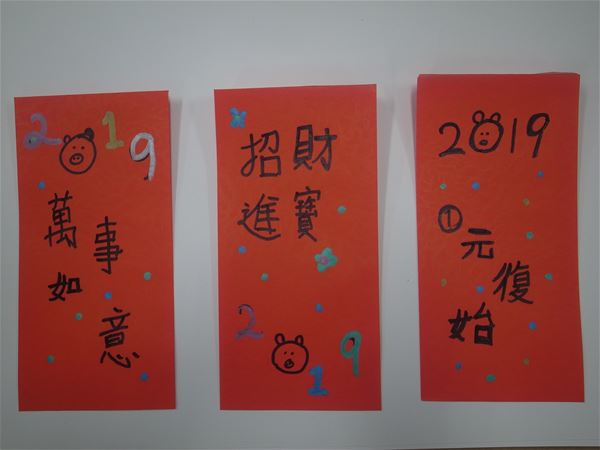 2019
萬事
如意
招財
進寶
2019
2019
①元復始